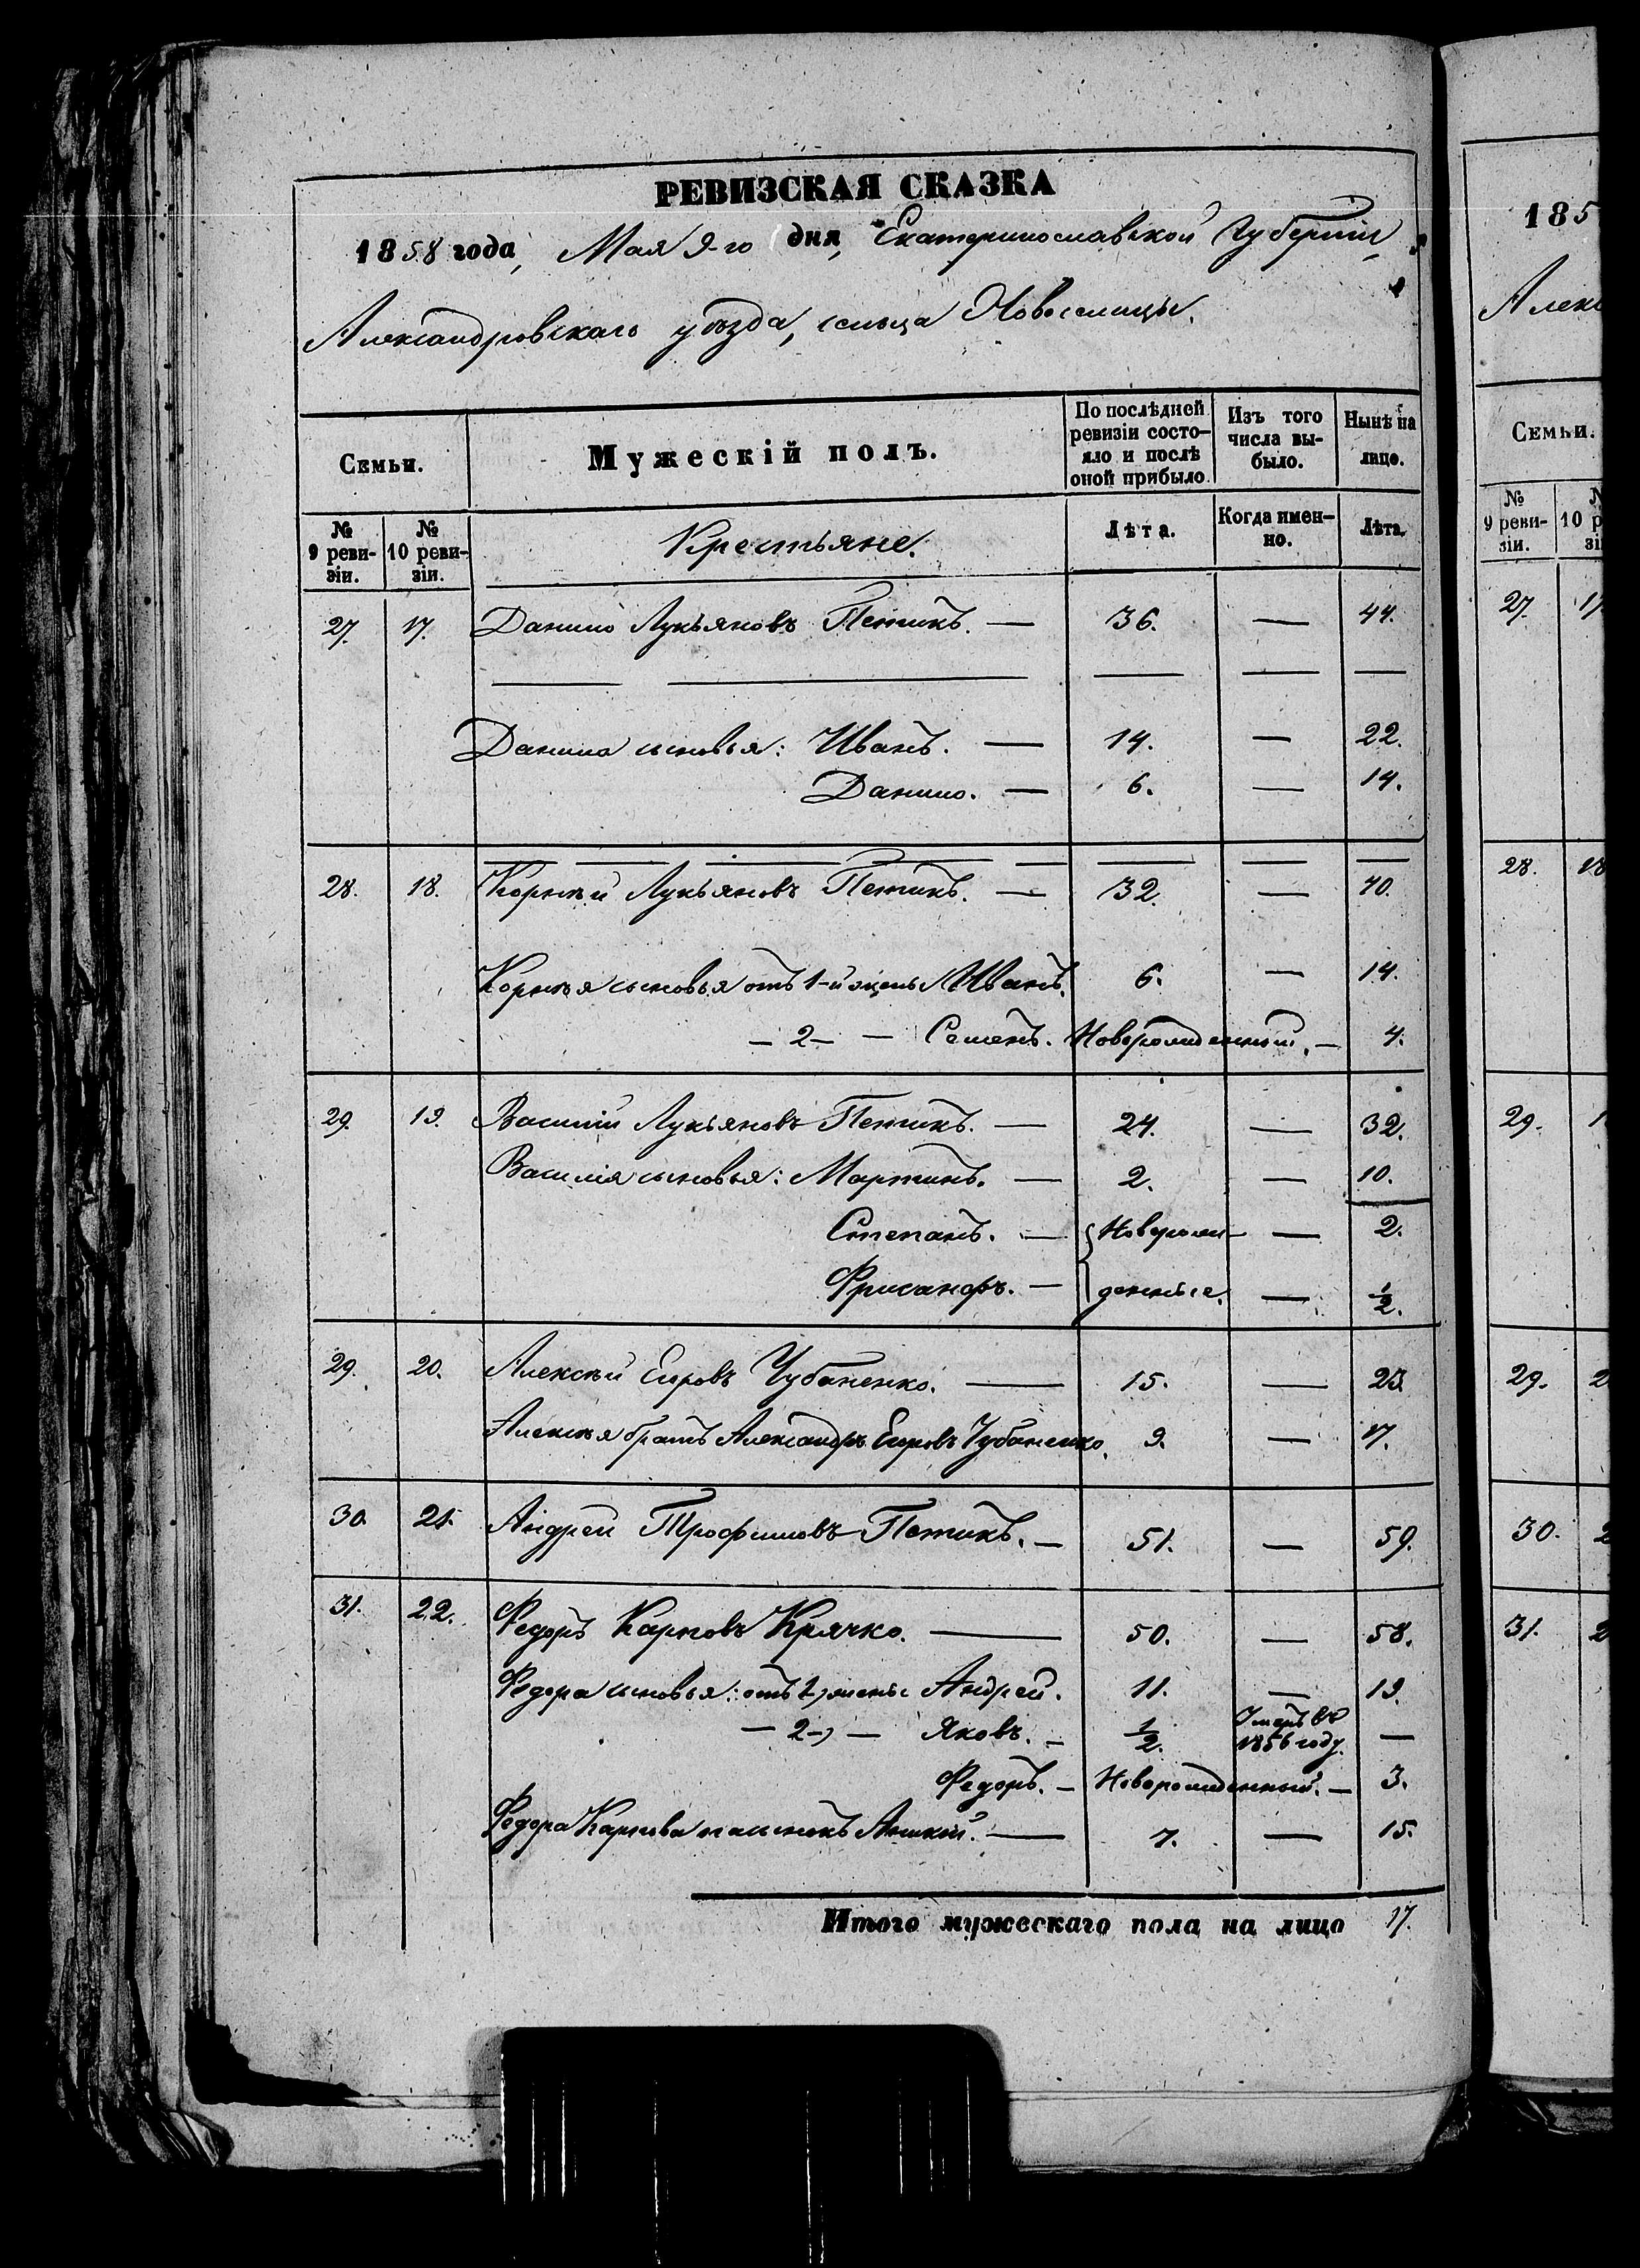 РЕВИЗСКАЯ СКАЗКА
1858 года, Мая 9-го дня, Екатеринославской Губерніи,
Александровскаго уѣзда, сельца Новоселицы.
Семьи.
Мужескій полъ.
По послѣдней ревизіи состояло и послѣ оной прибыло.
Изъ того числа выбыло.
Нынѣ на лицо.
№ 9 ревизіи.
№ 10 ревизіи.
Крестьяне.
Лѣта.
Когда именно.
Лѣта.
27. 17. Данило Лукьяновъ Петикъ. — 36. — 44.
Данила сыновья: Иванъ. — 14. — 22.
Данило. — 6. — 14.
28. 18. Корнѣй Лукьяновъ Петикъ. — 32. — 40.
Корнѣя сыновья отъ 1-й жены Иванъ. 6. — 14.
— 2 — — Семенъ. Новорожденный. — 4.
29. 19. Василій Лукьяновъ Петикъ. — 24. — 32.
Василія сыновья: Мартинъ. — 2. — 10.
Степанъ. — Новорож- — 2.
— денные. — 1/2.
29. 20. Алексѣй Егоровъ Чубаненко. — 15. — 23.
Алексѣя братъ Александръ Егоровъ Чубаненко. 9. — 17.
30. 21. Андрей Трофимовъ Петикъ. — 51. — 59.
31. 22. Федоръ Карповъ Крячко. — 50. — 58.
Федора сыновья: отъ 1 жены Андрей. 11. — 19.
— 2 — — Яковъ. — 1/2. Умеръ въ 1856 году. —
Федоръ. — Новорожденный. — 3.
Федора Карпова пасынокъ — 7. — 15.
Итого мужескаго пола на лицо 17.
185
Алекс
Семьи.
№ 9 ревизіи.
27. 17
28. 18
29.
29. 2
30. 2
31. 2